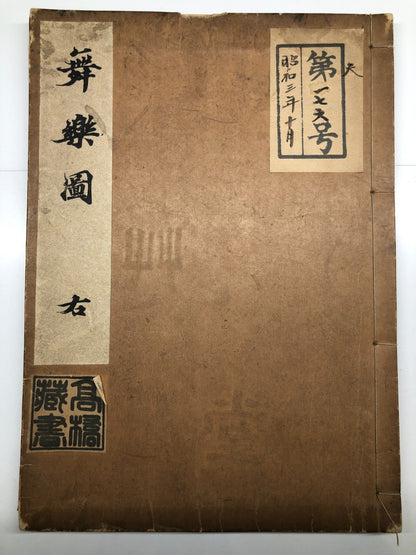 舞樂圖 右
天
第一七六号
昭和三年十月
高橋
藏書